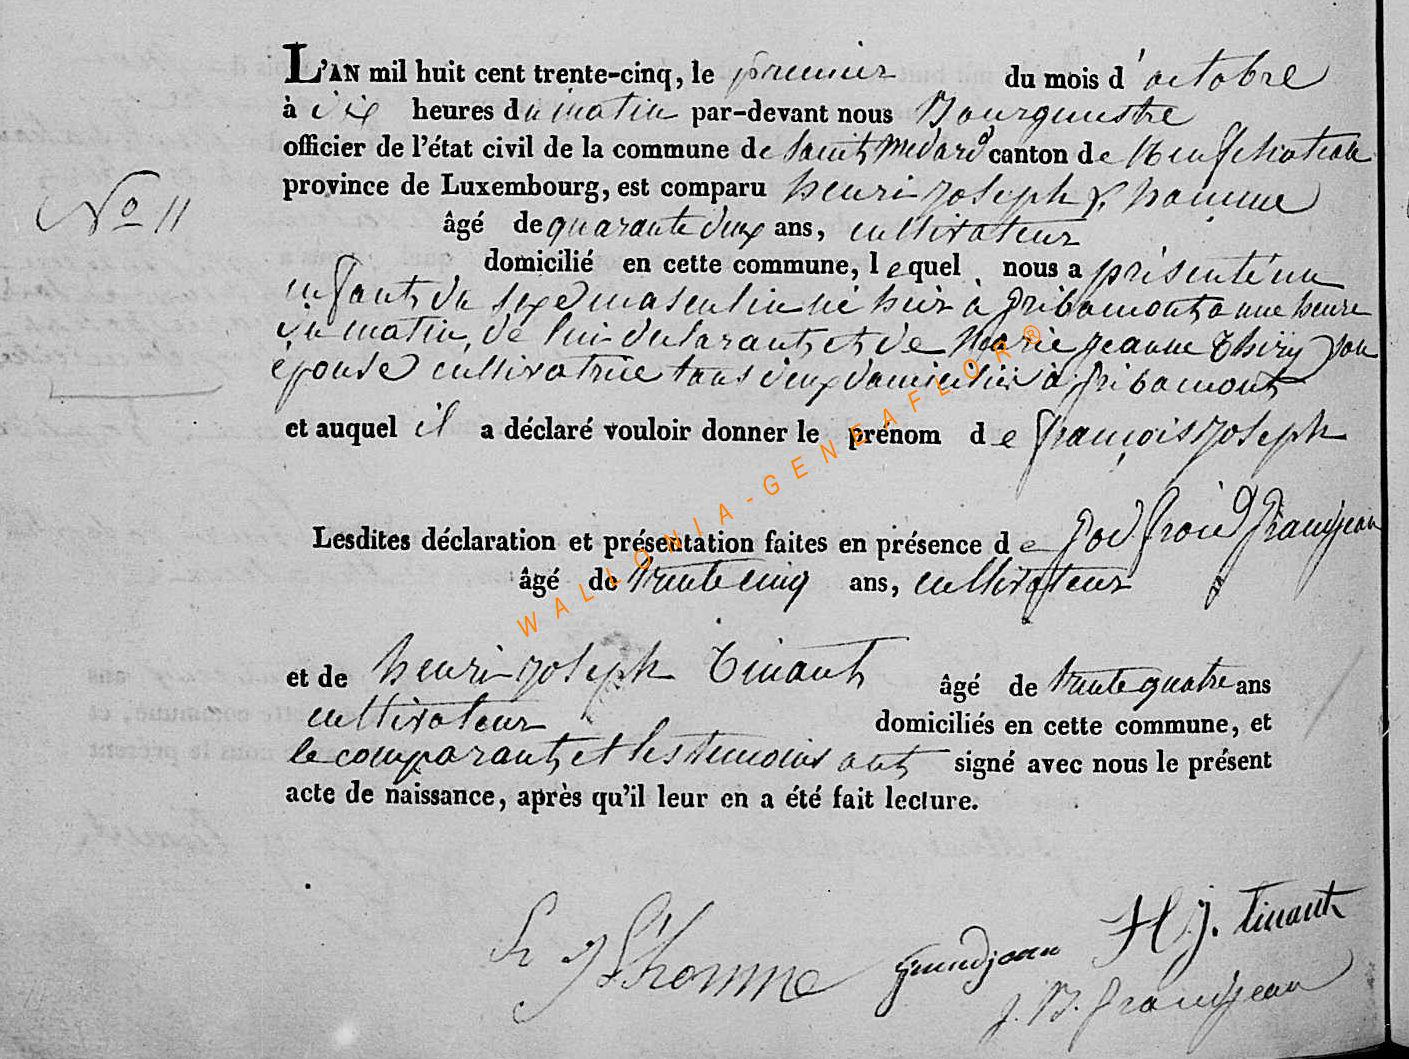 L'AN mil huit cent trente-cinq, le premier du mois d'octobre
à dix heures du matin par-devant nous Bourguestre
officier de l'état civil de la commune de Saint Medard canton de Neufchateau
province de Luxembourg, est comparu henri joseph L'homme
No 11
âgé de quarante deux ans, cultivateur
domicilié en cette commune, lequel nous a présenté un
enfant du sexe masculin né hier à gribomont a une heure
du matin, de lui declarant et de Marie jeanne Thiry son
épouse cultivatrice tous deux domiciliés à gribomont
et auquel il a déclaré vouloir donner le prénom de françois joseph
Lesdites déclaration et présentation faites en présence de godfroid Grandjean
âgé de trente cinq ans, cultivateur
et de henri joseph Tinant âgé de trente quatre ans
cultivateur domiciliés en cette commune, et
le comparant et les temoins ont signé avec nous le présent
acte de naissance, après qu'il leur en a été fait lecture.
h j L'homme grandjean H. J. tinant
J. B. grandjean
WALLONIA-GENEAFLOR®